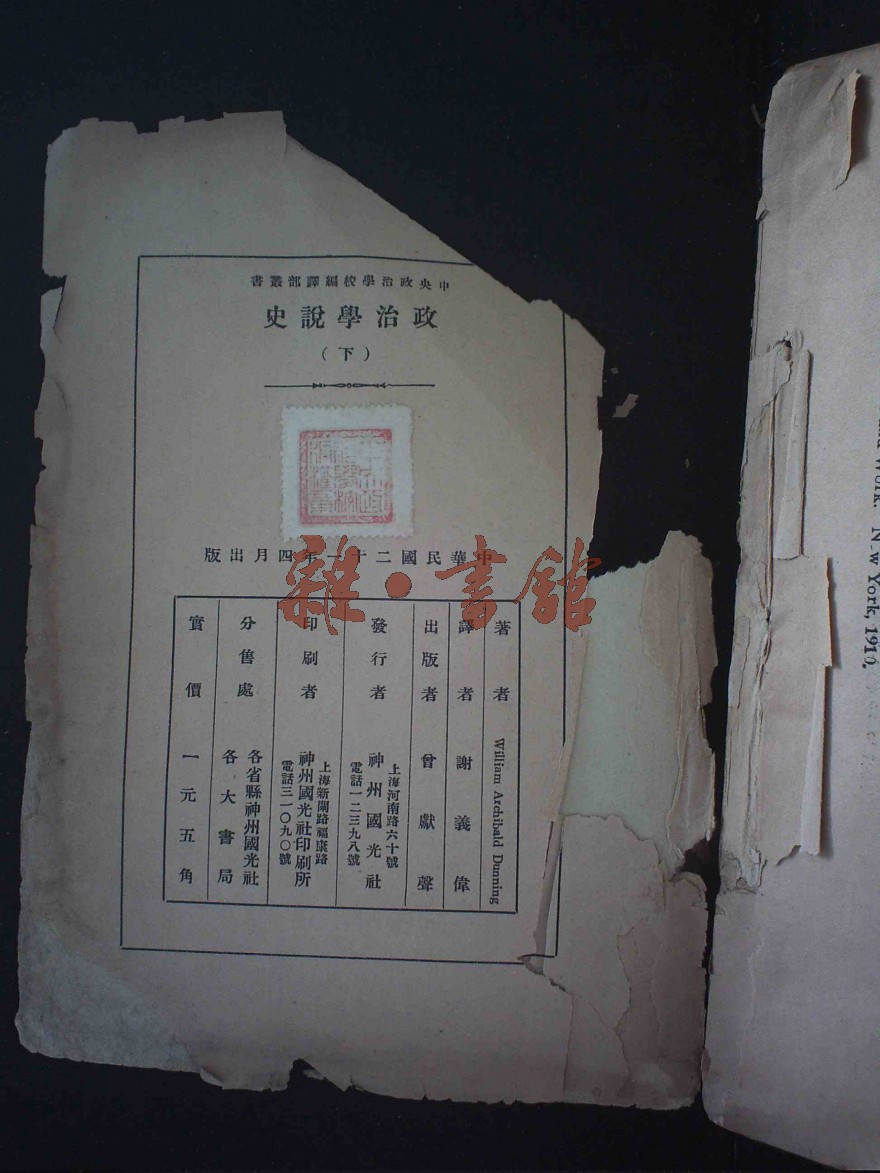 中央政治學校編譯部叢書
政治學說史
（下）
中華民國二十一年四月出版
著者 William Archibald Dunning
譯者 謝義偉
出版者 曾獻聲
發行者 神州國光社
上海河南路六十號
電話一二三九八號
印刷者 神州國光社印刷所
上海新閘路福康路
電話三一〇九〇號
分售處 各省縣神州國光社
各大書局
實價 一元五角
雜·書館
Work. N.w York, 1910.